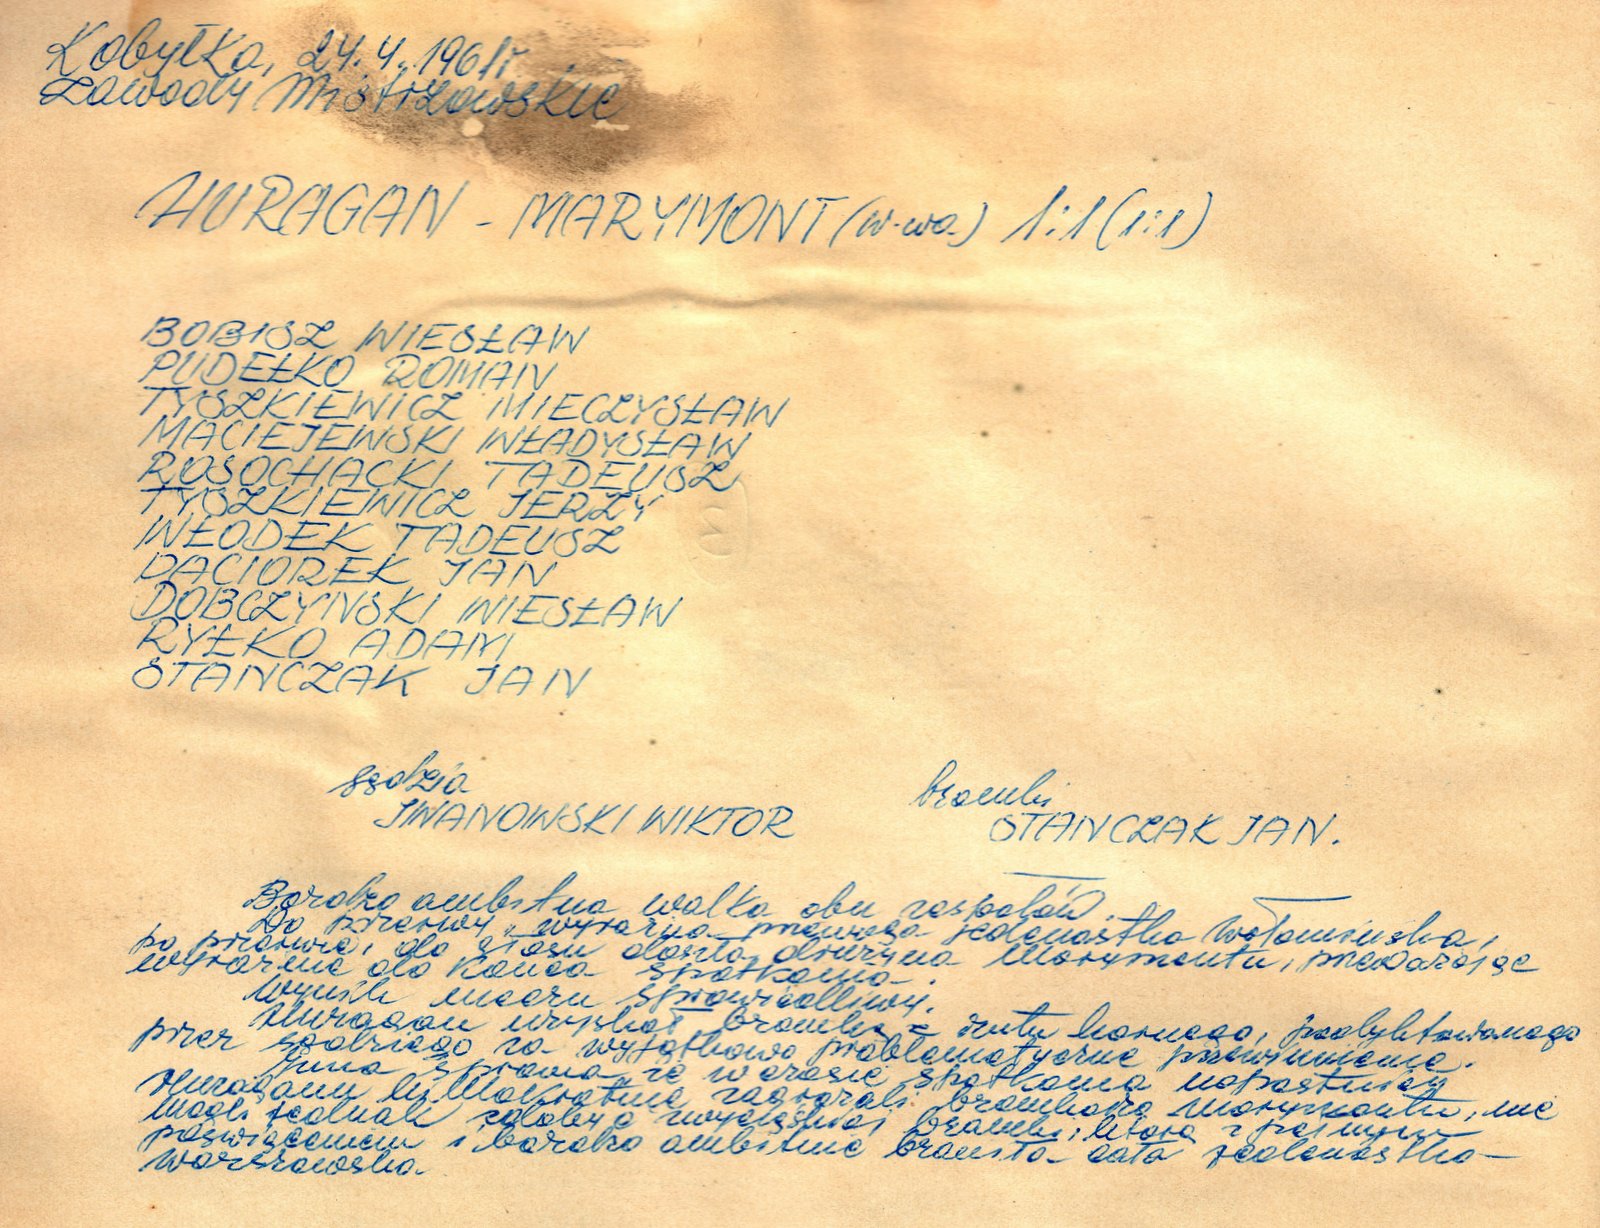 Kobyłka, 24.4.1961r
Zawody Mistrzowskie
HURAGAN - MARYMONT (W-wa) 1:1 (1:1)
BOBISZ WIESŁAW
PUDEŁKO ROMAN
TYSZKIEWICZ MIECZYSŁAW
MACIEJEWSKI WŁADYSŁAW
ROSOCHACKI TADEUSZ
TYSZKIEWICZ JERZY
WŁODEK TADEUSZ
PACIOREK JAN
DOBCZYNSKI WIESŁAW
RYŁKO ADAM
STANCZAK JAN
sędzia
IWANOWSKI WIKTOR
bramki
STANCZAK JAN.
Bardzo ambitna walka obu zespołów.
Do przerwy wyraźna przewaga jedenastka Wołomińska,
po przerwie, do głosu doszła drużyna Marymontu, przeważając
wyraźnie do końca spotkania.
Wynik meczu sprawiedliwy.
Huragan uzyskał bramkę z rzutu karnego, podyktowanego
przez sędziego za wyjątkowo problematyczne przewinienie.
Inna sprawa, że w czasie spotkania napastnicy
Huraganu kilkakrotnie zagrażali bramkarzo Marymontu, nie
mogli jednak zdobyć zwycięskiej bramki, która z
poświęceniem i bardzo ambitnie broniła cała jedenastka
warszawska.